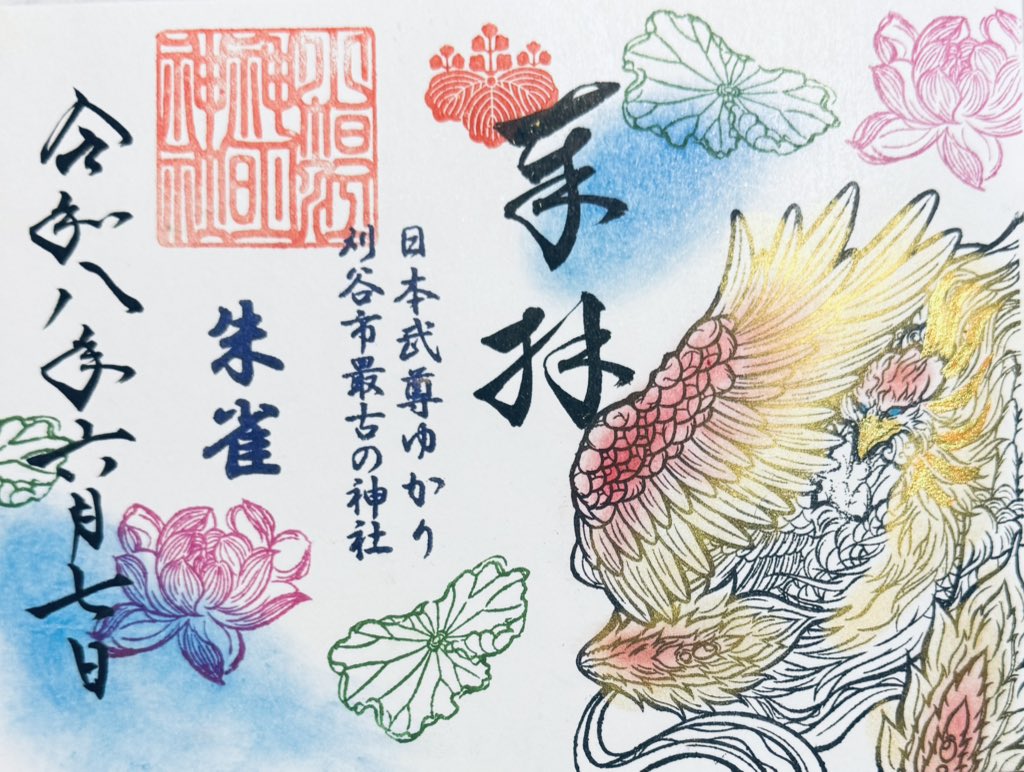 奉拝
日本武尊ゆかり
刈谷市最古の神社
小垣江
神明
神社
朱雀
令和八年六月七日